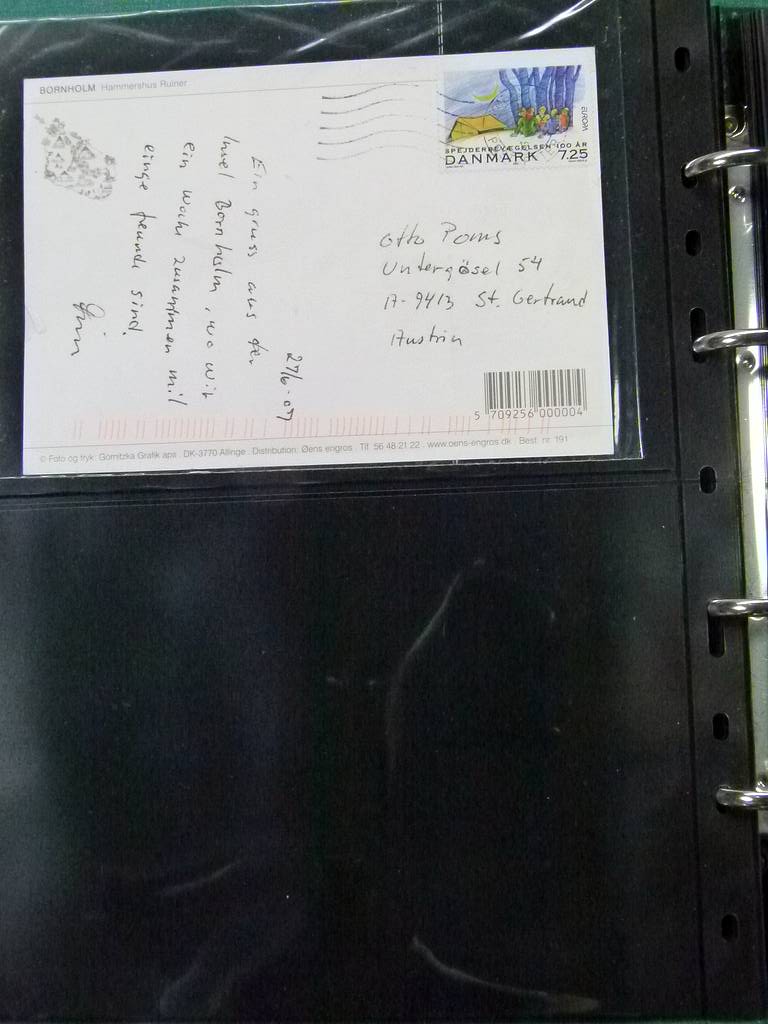 BORNHOLM Hammershus Ruiner
EUROPA
SPEJDERBEVÆGELSEN 100 ÅR
DANMARK 7.25
27/6-07
Ein gruss aus der
Insel Bornholm, wo wir
ein woche zusammen mit
einge freunde sind.
Otto Poms
Untergösel 54
A-9413 St. Gertrand
Austria
5 709256 000004
© Foto og tryk: Gornitzka Grafik aps . DK-3770 Allinge . Distribution: Øens engros . Tlf. 56 48 21 22 . www.oens-engros.dk . Best. nr. 191